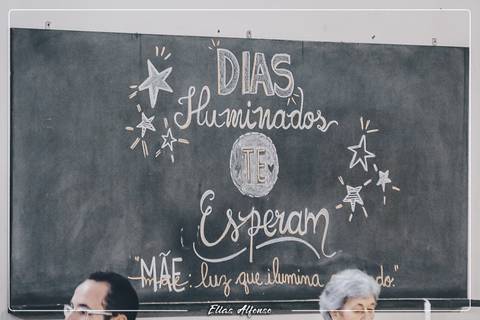 DIAS
Iluminados
TE
Esperam
"MÃE: luz que ilumina
Elias Alfonso